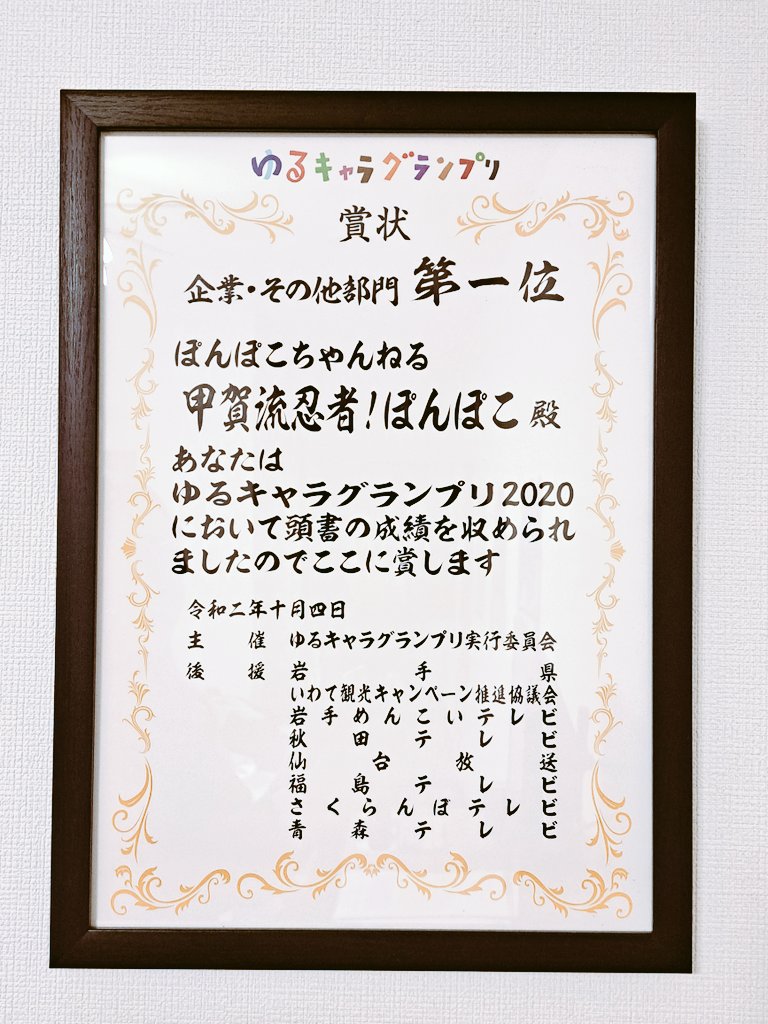 ゆるキャラグランプリ
賞状
企業・その他部門 第一位
ぽんぽこちゃんねる
甲賀流忍者!ぽんぽこ 殿
あなたは
ゆるキャラグランプリ2020
において頭書の成績を収められ
ましたのでここに賞します
令和二年十月四日
主催 ゆるキャラグランプリ実行委員会
後援 岩手県
いわて観光キャンペーン推進協議会
岩手めんこいテレビ
秋田テレビ
仙台放送
福島テレビ
さくらんぼテレビ
青森テレビ